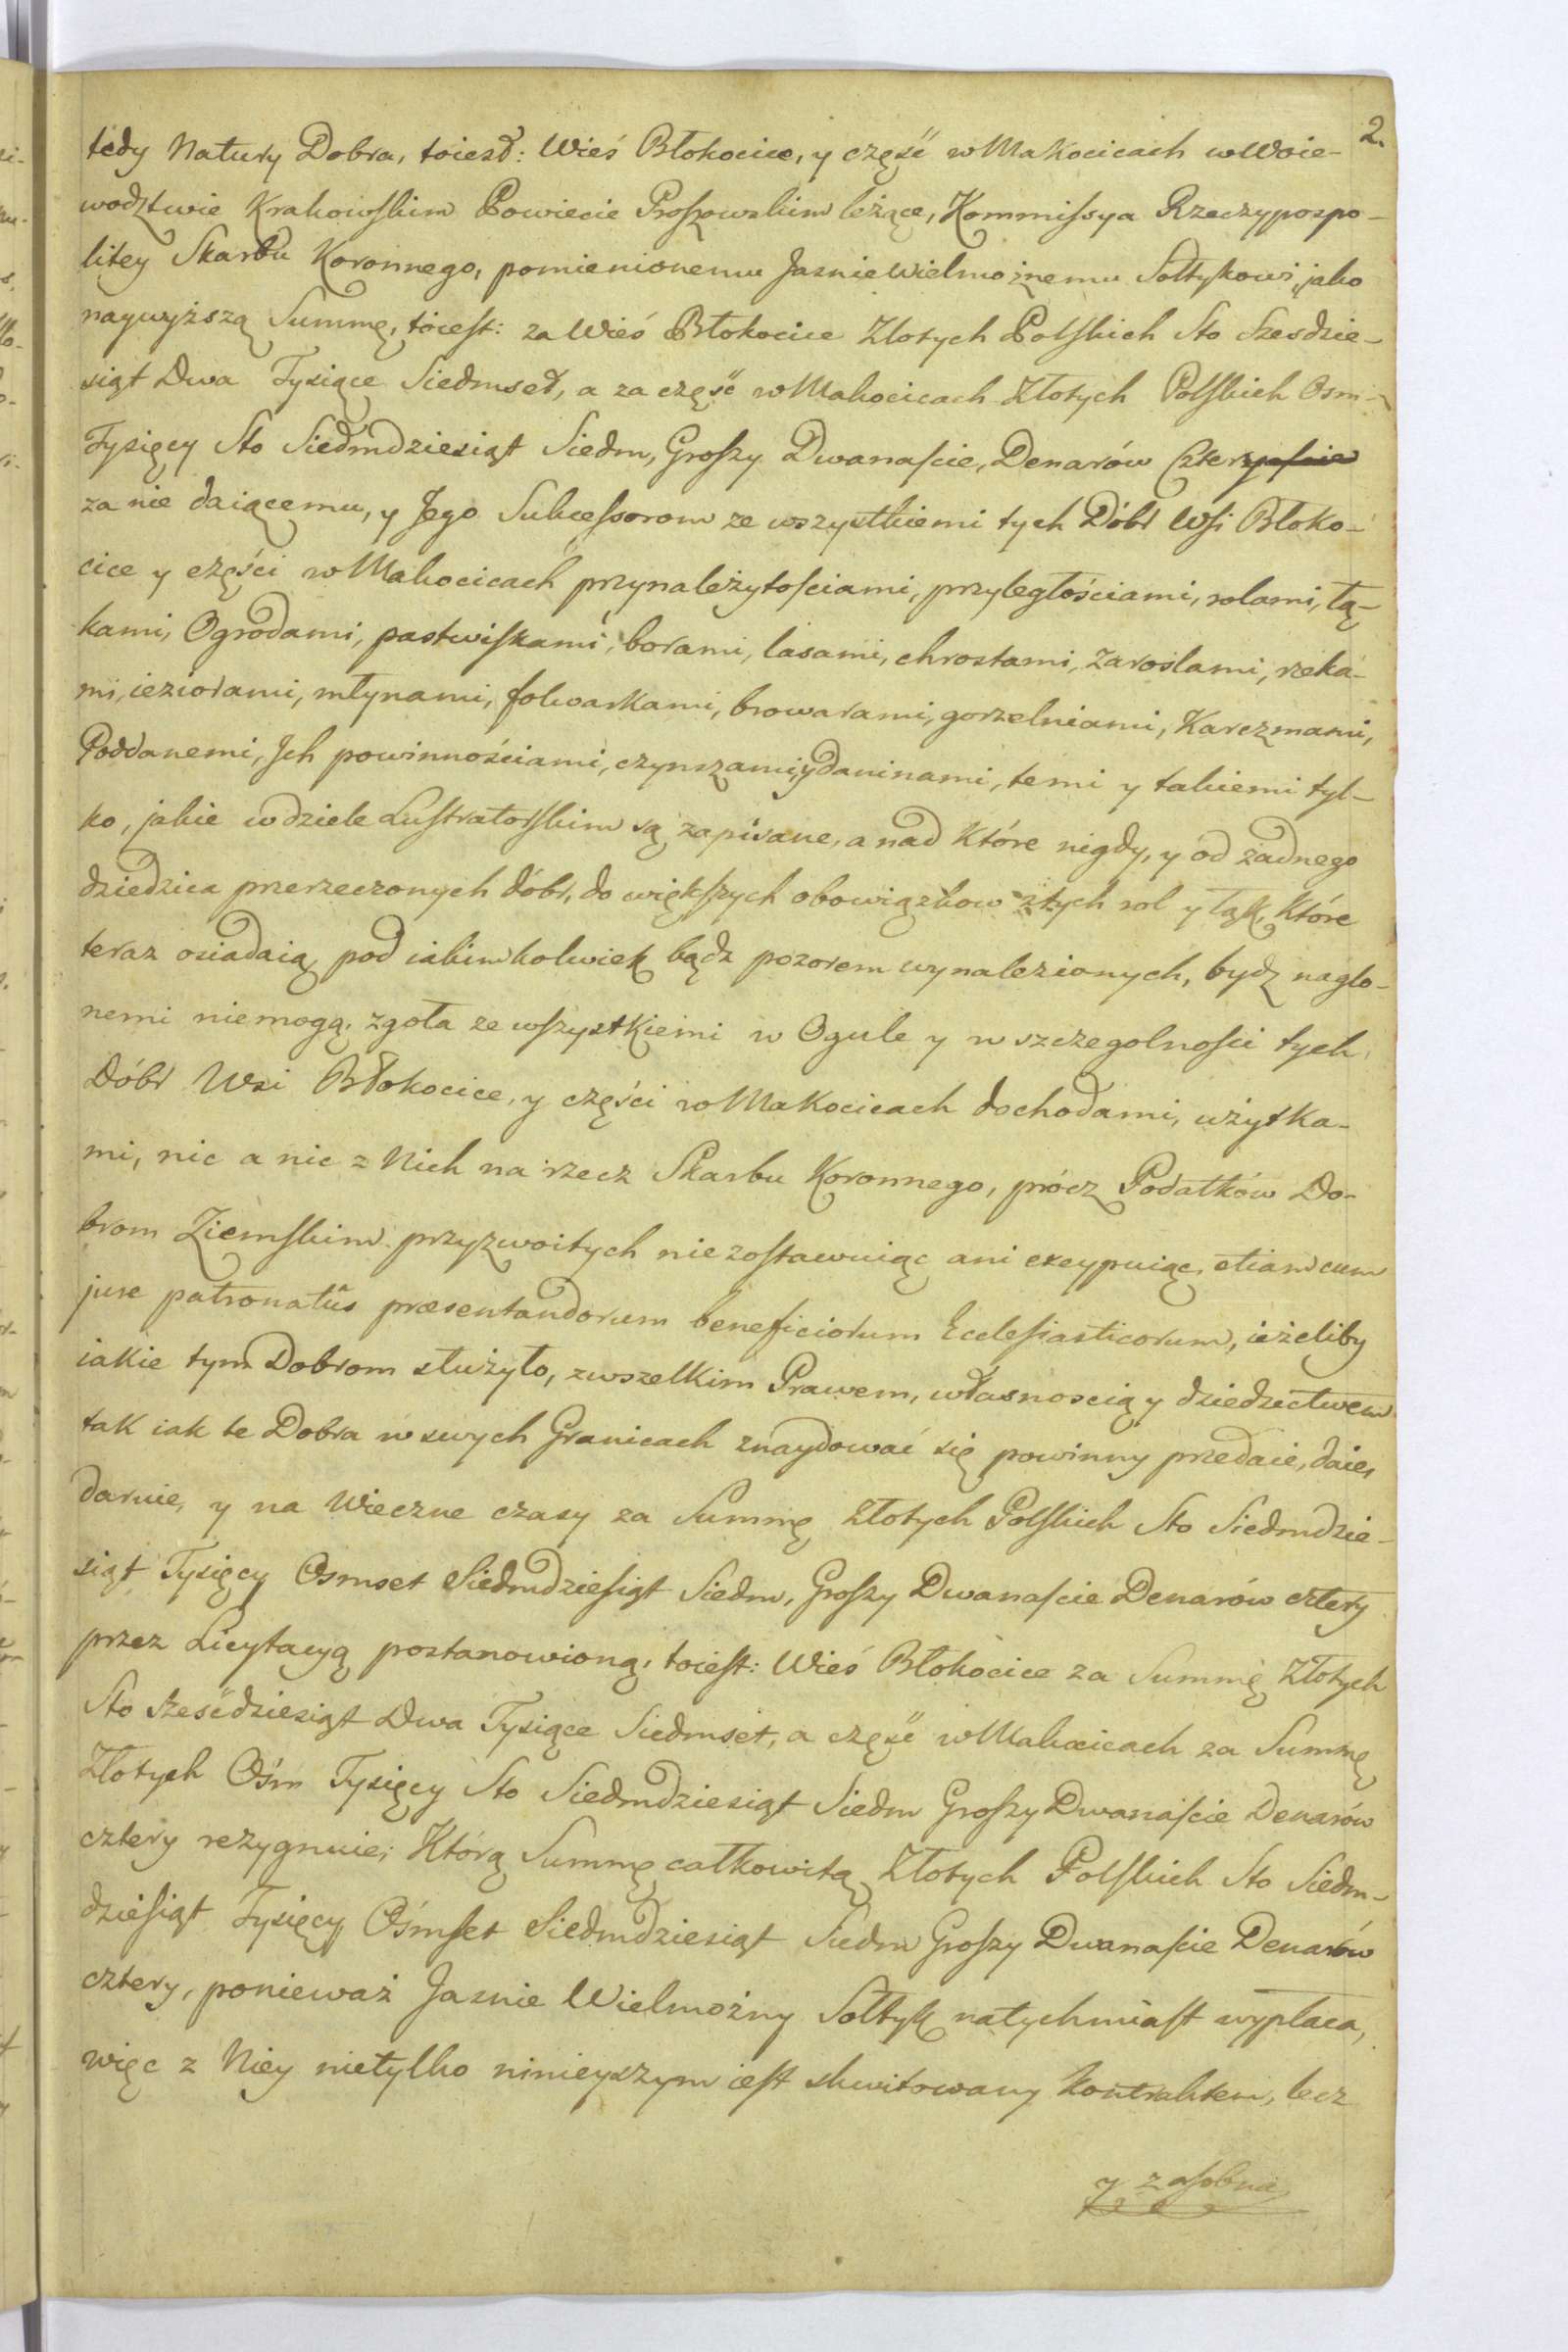 2.
tedy Natury Dobra, toiest: Wieś Błokocice, y część w Makocicach w Woie-
wodztwie Krakowskim Powiecie Proszowskim leżące, Kommissya Rzeczypospo-
litey Skarbu Koronnego, pomienionemu Jasnie Wielmożnemu Sołtykowi, jako
naywyższą Summę, toiest: za Wieś Błokocice Złotych Polskich Sto Szesdzie-
siąt Dwa Tysiące Siedmset, a za część w Makocicach Złotych Polskich Osm-
Tysięcy Sto Siedmdziesiąt Siedm, Groszy Dwanaście, Denarów Cztery
za nie daiącemu, y Jego Sukcessorom ze wszystkiemi tych Dóbr Wsi Błoko-
cice y części w Makocicach przynależytościami, przyległościami, rolami, łą-
kami, Ogrodami, pastwiskami, borami, lasami, chrostami, zaroslami, rzeka-
mi, ieziorami, młynami, folwarkami, browarami, gorzelniami, Karczmami,
Poddanemi, Jch powinnościami, czynszami, y daninami, temi y takiemi tyl-
ko, jakie w dziele Lustratorskim są zapisane, a nad które nigdy, y od żadnego
dziedzica przerzeczonych dóbr, do większych obowiązkow z tych rol y łąk, które
teraz osiadaią pod iakimkolwiek bądz pozorem wynalezionych, bydz naglo-
nemi niemogą, zgoła ze wszystkiemi w Ogule y w szczegolności tych
Dóbr Wsi Błokocice, y części w Makocicach dochodami, użytka-
mi, nic a nic z Nich na rzecz Skarbu Koronnego, prócz Podatków Do-
brom Ziemskim przyzwoitych niezostawuiąc ani excypuiąc, etiam cum
jure patronatûs præsentandorum beneficiorum Ecclesiasticorum, ieżeliby
iakie tym Dobrom służyło, z wszelkim Prawem, własnoscią y dziedzictwem
tak iak te Dobra w swych Granicach znaydować się powinny przedaie, daie,
daruie, y na Wieczne czasy za Summę Złotych Polskich Sto Siedmdzie-
siąt Tysięcy Osmset Siedmdziesiąt Siedm, Groszy Dwanaście Denarów cztery
przez Licytacyą postanowioną, toiest: Wieś Błokocice za Summę Złotych
Sto Sześćdziesiąt Dwa Tysiące Siedmset, a część w Makocicach za Summę
Złotych Ośm Tysięcy Sto Siedmdziesiąt Siedm Groszy Dwanaście Denarów
cztery rezygnuie; Którą Summę całkowitą Złotych Polskich Sto Siedm-
dziesiąt Tysięcy Ośmset Siedmdziesiąt Siedm Groszy Dwanaście Denarów
cztery, ponieważ Jasnie Wielmożny Sołtyk natychmiast wypłaca,
więc z Niey nietylko ninieyszym iest skwitowany kontraktem, lecz
y z osobna